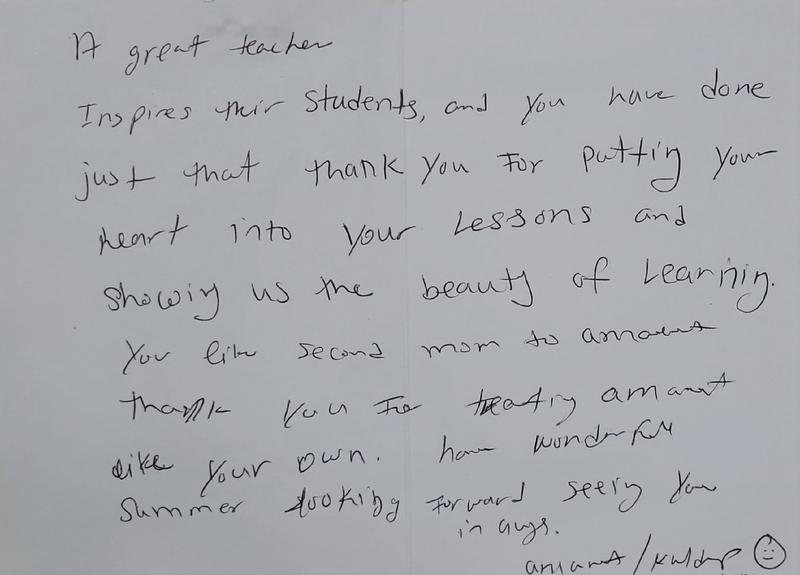 A great teacher
Inspires their students, and you have done
just that thank you for putting your
heart into your Lessons and
showing us the beauty of Learning.
You like second mom to amanat
thank you for treating amanat
like your own. have wonderful
Summer looking forward seeing you
in augs.
amanat / Kuldip